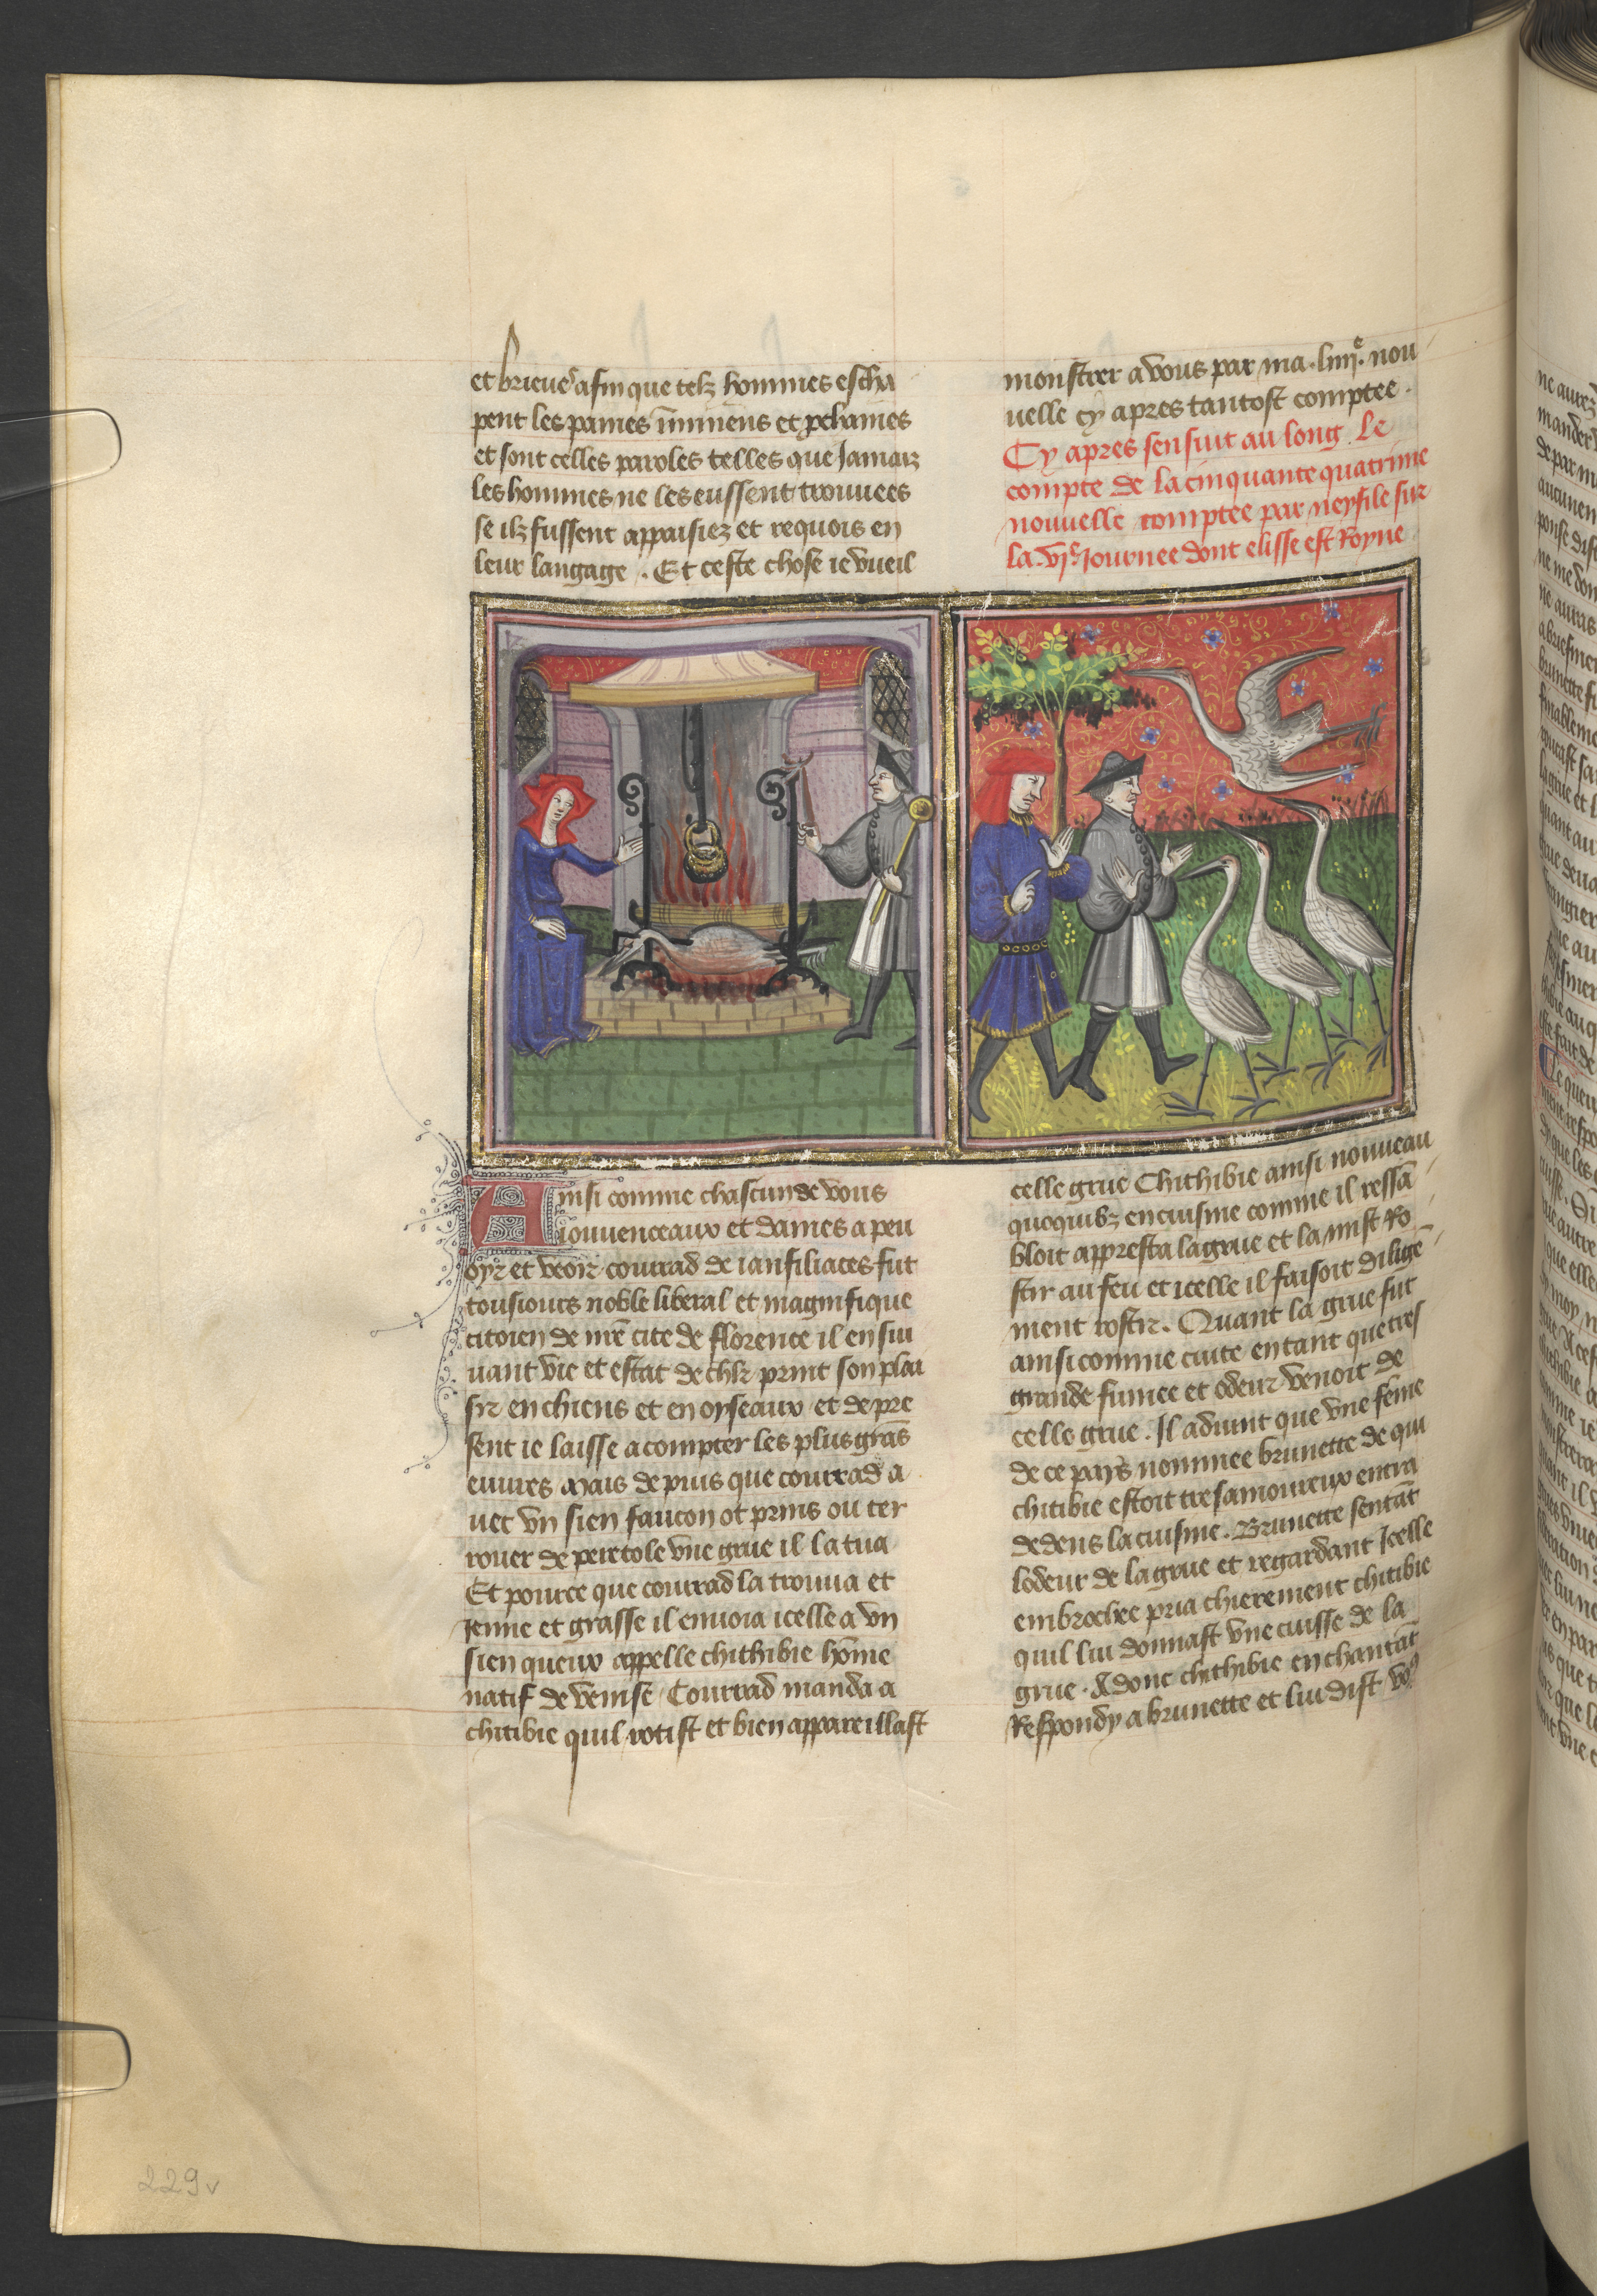 et brieues afin que telz hommes escha
pent les paines iminens et pchaines
et sont celles paroles telles que Jamaiz
les hommes ne les eussent trouuees
se ilz fussent appaisiez et requois en
leur langage . Et ceste chose ie vueil
monstrer a vous par ma .liiije. nou
uelle cy apres tantost comptee .
Cy apres sensuit au long Le
compte de la cinquante quatrime
nouuelle comptee par neyfile sur
la .vje. Journee dont elisse est Royne
Ainsi comme chascun de vous
iouuenceaux et dames a peu
oyr et veoir courrad de ianfiliaces fut
tousiours noble liberal et magnifique
citoien de nre cite de florence il ensui
uant vie et estat de chlr print son plai
sir en chiens et en oyseaux et de pre
sent ie laisse a compter les plus grans
euures Mais depuis que courrad a
uec vn sien faucon ot prins ou ter
rouer de peretole vne grue il la tua
Et pource que courrad la trouua et
Jenne et grasse il enuoia icelle a vn
sien queux appelle chithibie home
natif de venise Courrad manda a
chitibie quil rotist et bien appareillast
celle grue Chithibie ainsi nouueau
en cuisine comme il ressa
bloit appresta la grue et la mist Ro
stir au feu et icelle il faisoit dilige
ment rostir . Quant la grue fut
ainsi comme cuite en tant que tres
grande fumee et odeur venoit de
celle grue . Il aduint que vne feme
de ce pays nommee brunette de qui
chitibie estoit tresamoureux entra
dedens la cuisine . Brunette sentat
lodeur de la grue et regardant Jcelle
embrochee pria chierement chitibie
quil lui donnast vne cuisse de la
grue . Adonc chithibie en chantat
Respondy a brunette et lui dist vo9
229v